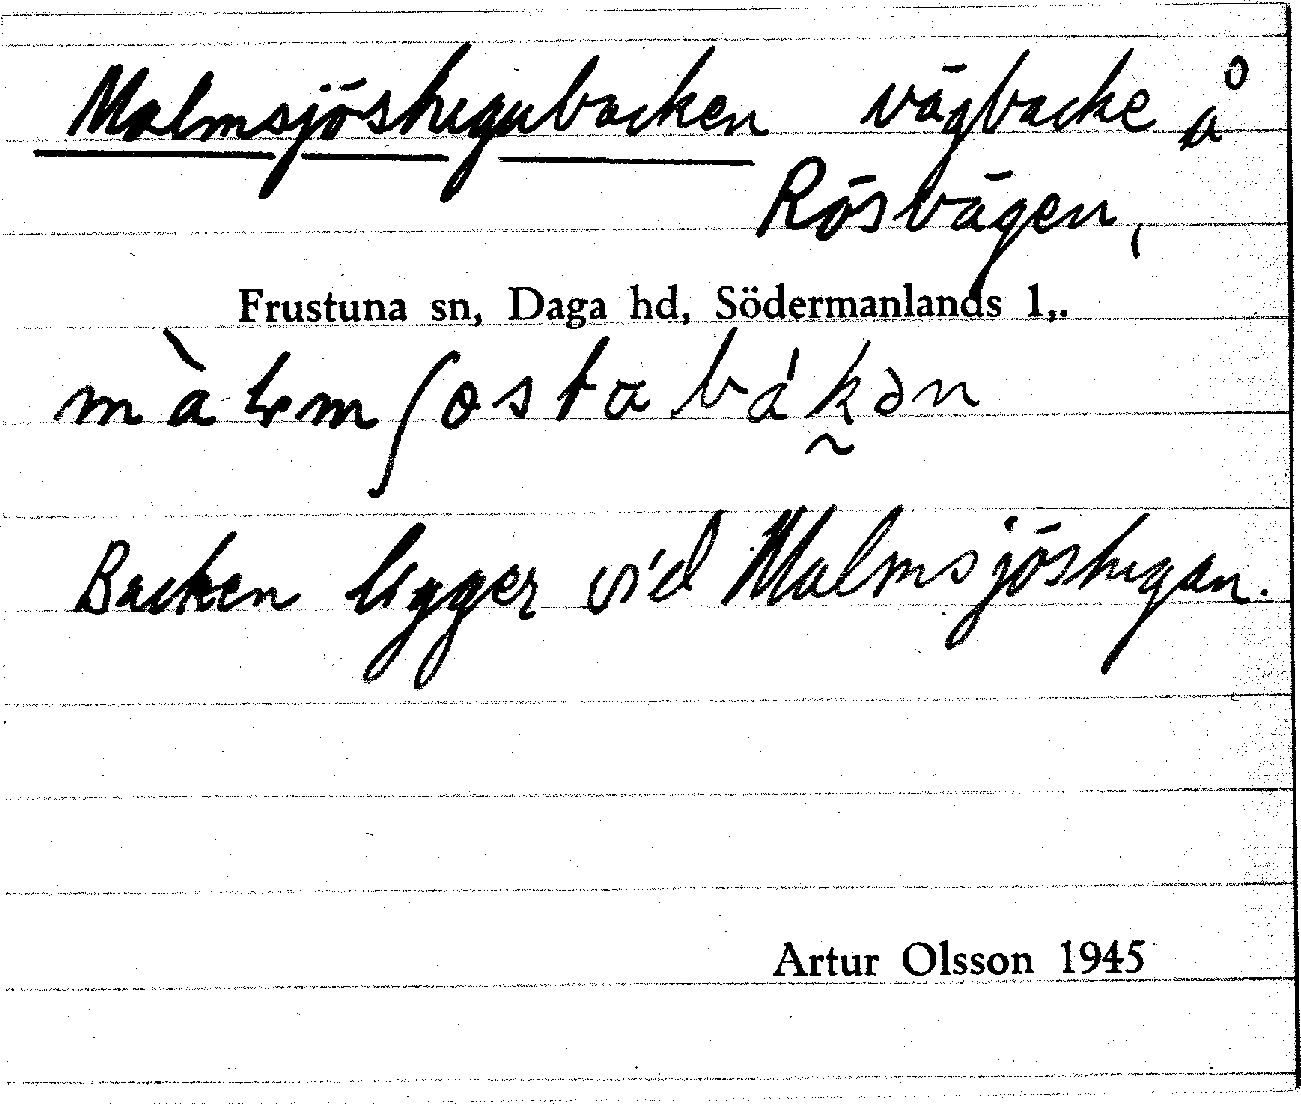 Malmsjöstugubacken vägbacke å
Rösvägen,
Frustuna sn, Daga hd, Södermanlands l,.
Backen ligger vid Malmsjöstugan.
Artur Olsson 1945